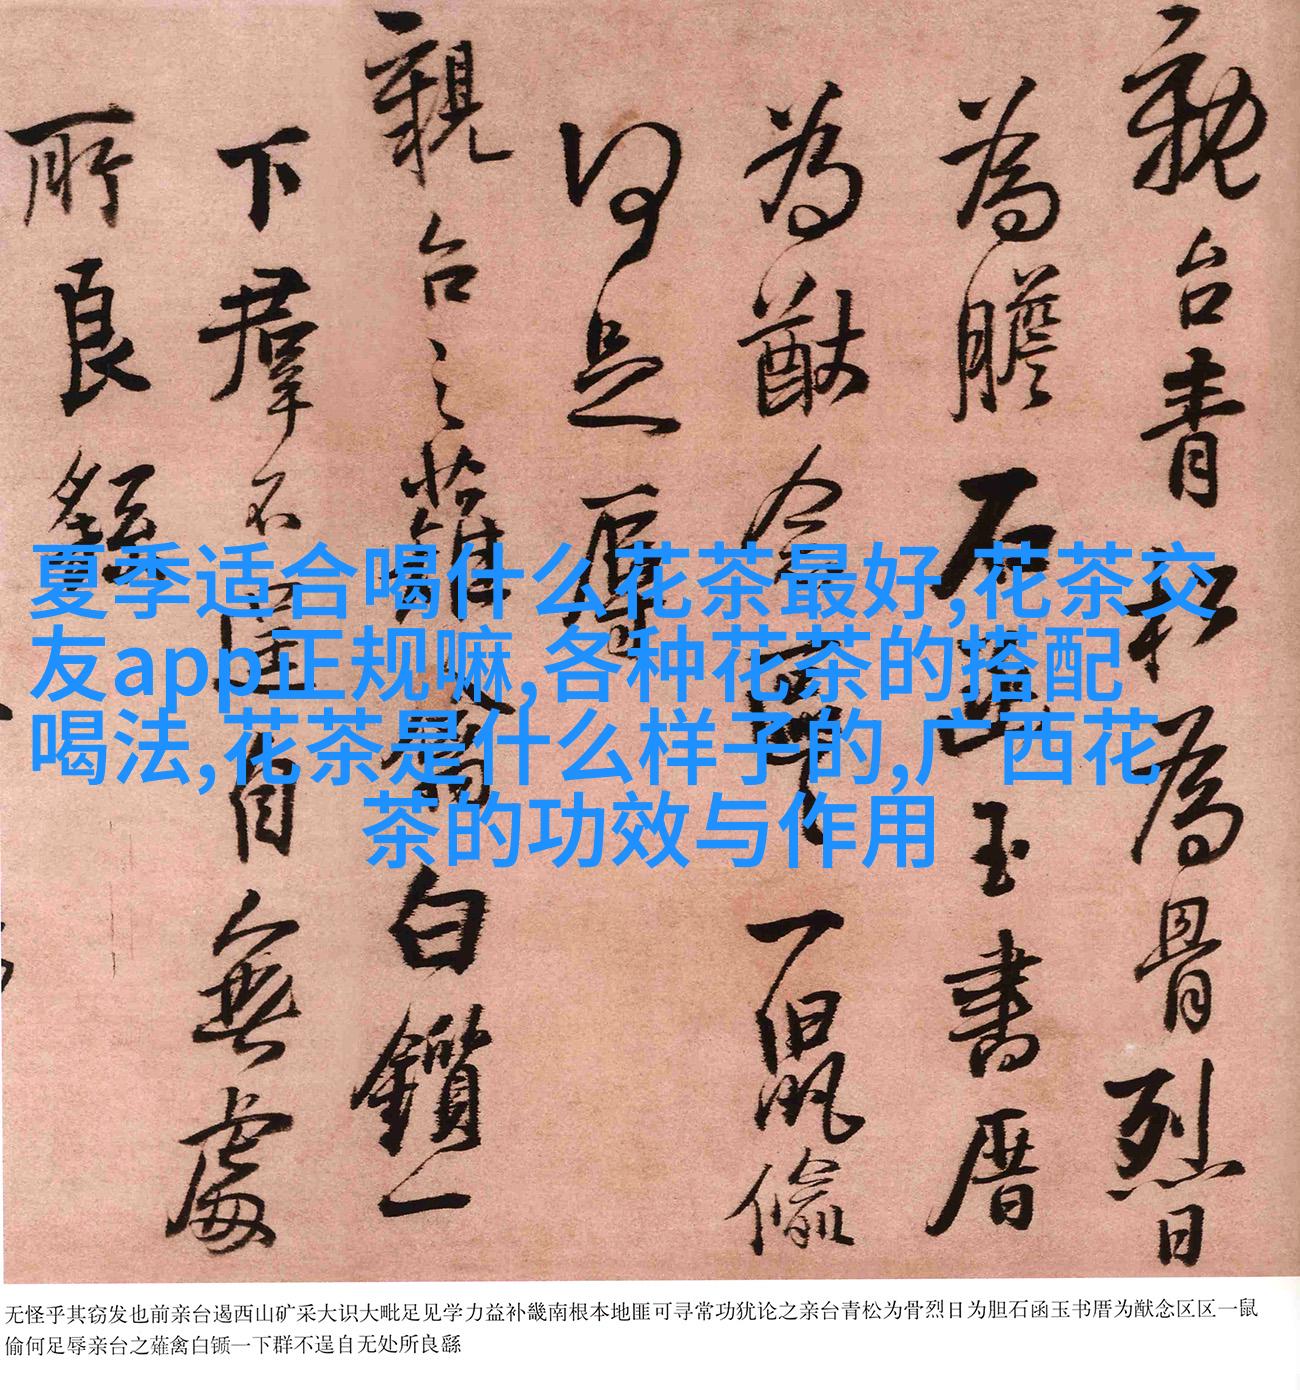 親台青松為骨烈日
為膽石函玉書厝
為猷念區區一鼠偷
何足辱
親台之薙禽白鑕一
下群不逞自無處
所良繇
夏季适合喝什么花茶最好,花茶交
友app正规嘛,各种花茶的搭配
喝法,花茶是什么样子的,广西花
茶的功效与作用
无怪乎其窃发也前亲台遏西山矿采大识大毗足见学力益补畿南根本地匪可寻常功犹论之亲台青松为骨烈日为胆石函玉书厝为猷念区区一鼠
偷何足辱亲台之薙禽白锧一下群不逞自无处所良繇